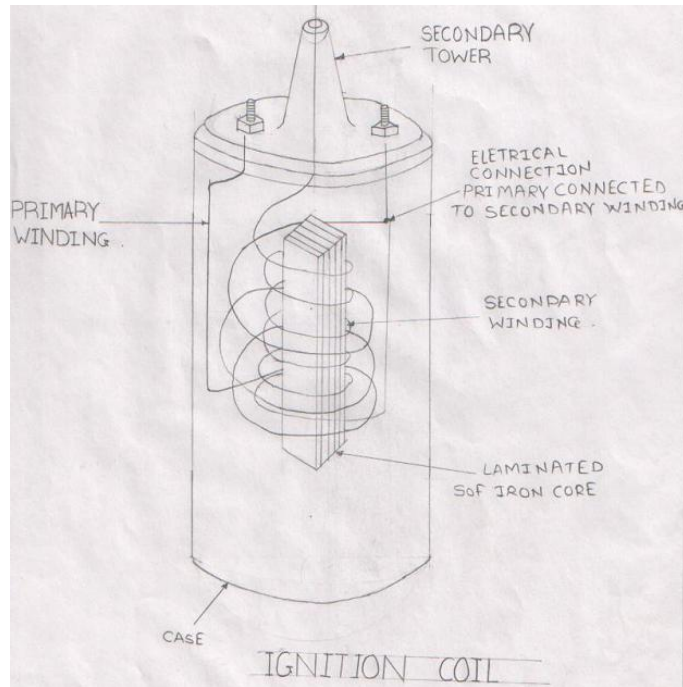 SECONDARY
TOWER
ELETRICAL
CONNECTION
PRIMARY CONNECTED
TO SECONDARY WINDING
PRIMARY
WINDING.
SECONDARY
WINDING.
LAMINATED
SOF IRON CORE
CASE
IGNITION COIL